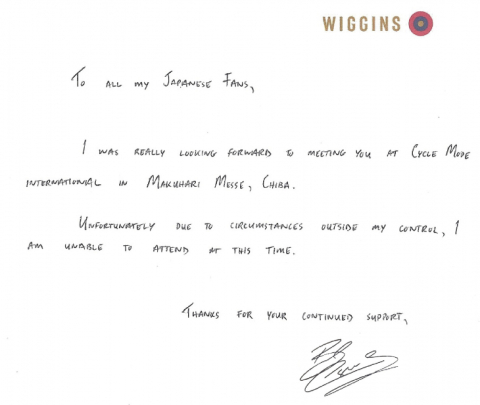 WIGGINS
TO ALL MY JAPANESE FANS,
I WAS REALLY LOOKING FORWARD TO MEETING YOU AT CYCLE MODE
INTERNATIONAL IN MAKUHARI MESSE, CHIBA.
UNFORTUNATELY DUE TO CIRCUMSTANCES OUTSIDE MY CONTROL, I
AM UNABLE TO ATTEND AT THIS TIME.
THANKS FOR YOUR CONTINUED SUPPORT,